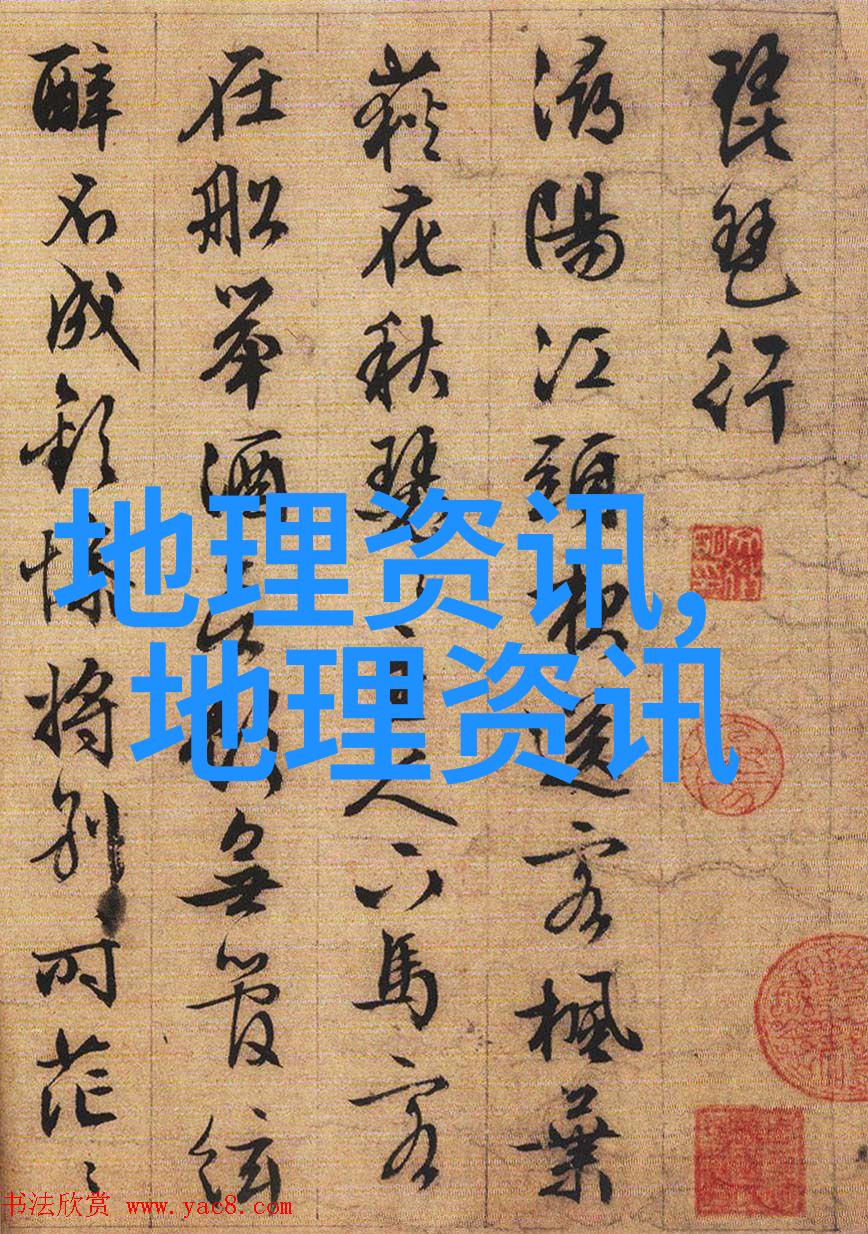 琵琶行
潯陽江頭夜送客楓葉
荻花秋瑟〻主人下馬客
在船舉酒飲無管絃
醉不成歡慘將別時茫〻
地理资讯,
地理资讯
书法欣赏 www.yac8.com